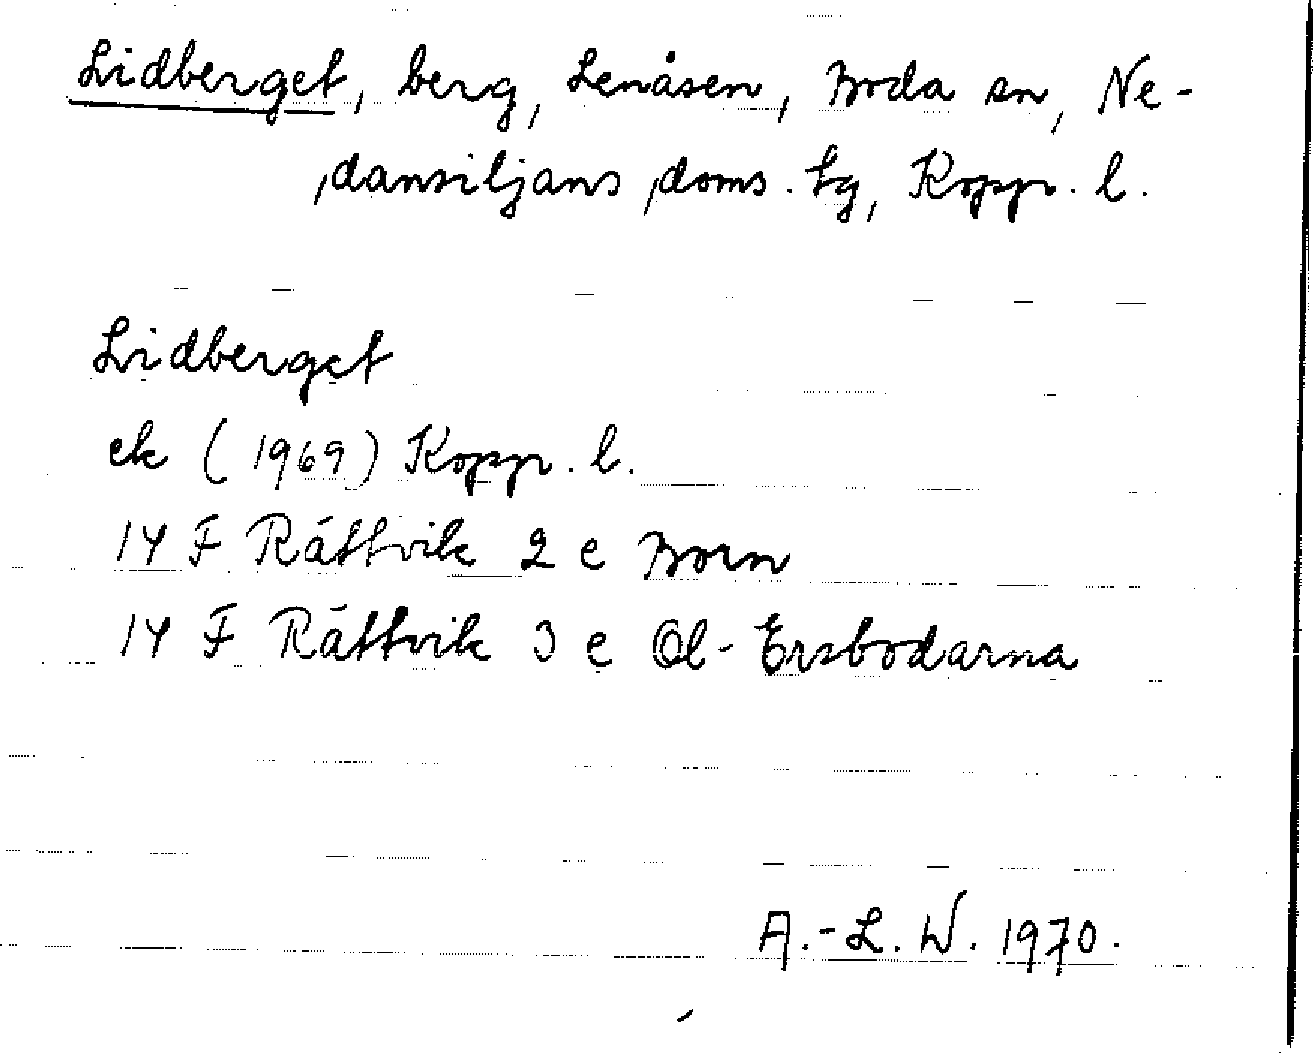 Lidberget, berg, Lenåsen, Boda sn, Ne-
dansiljans doms. tg, Kopp. l.
Lidberget
ek (1969) Kopp. l.
14 F Rättvik 2 e Born
14 F Rättvik 3 e Ol-Ersbodarna
A.-L. W. 1970.